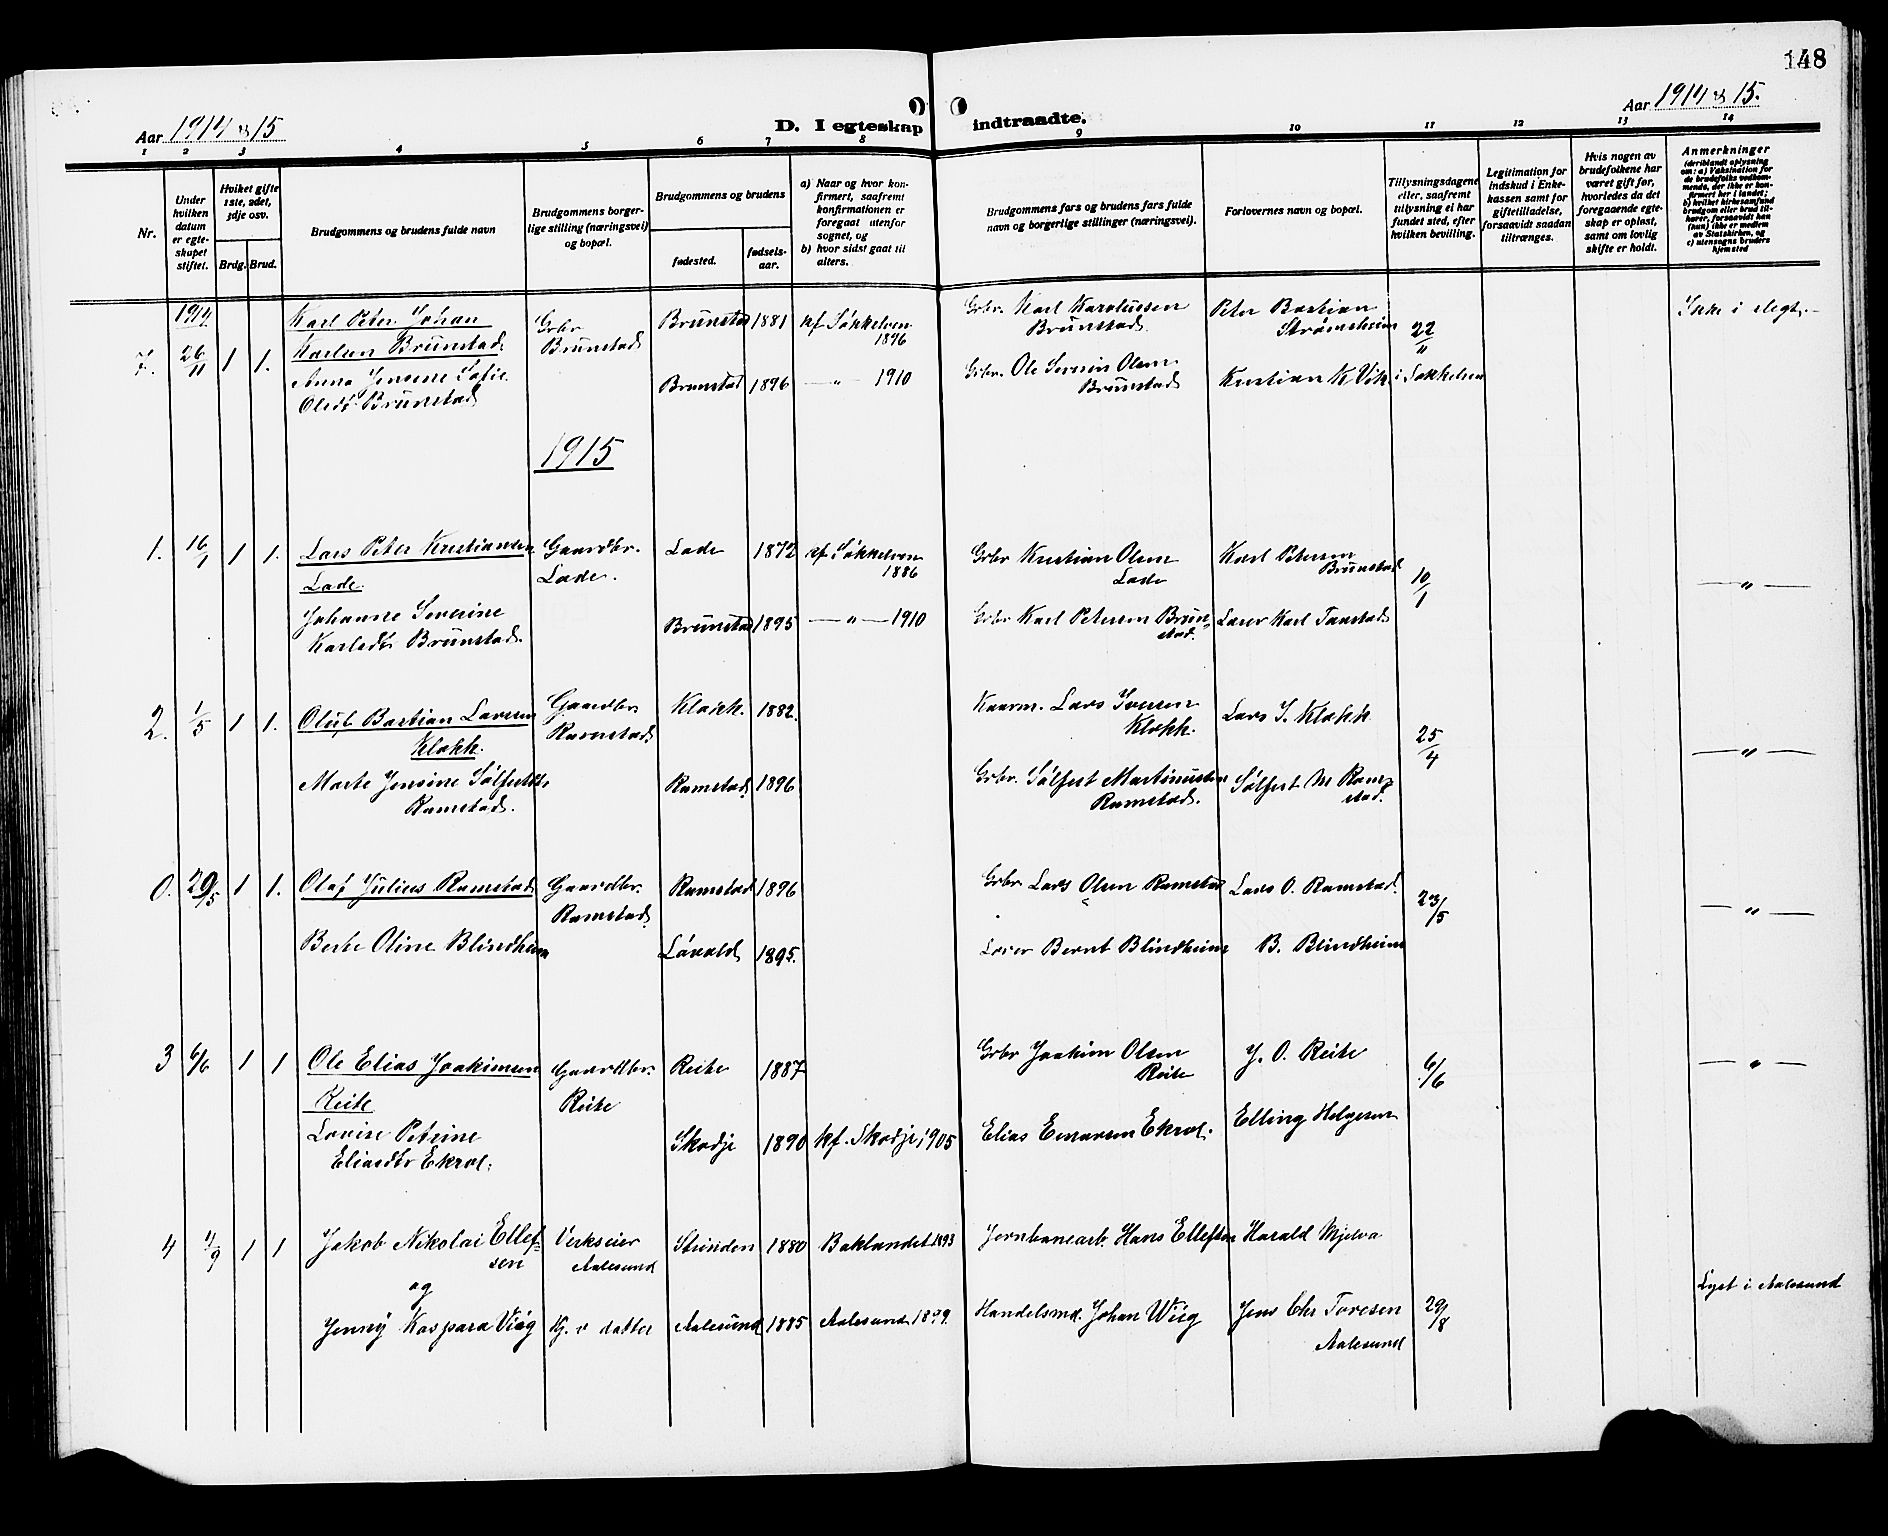 148
Aar 1914 & 15
D. I egteskap indtraadte.
Aar 1914 & 15.
1 2 3 4 5 6 7 8 9 10 11 12 13 14
Nr.
Under hvilken datum er egteskapet stiftet.
Hvilket gifte 1ste, 2det, 3dje osv.
Brdg. Brud.
Brudgommens og brudens fulde navn
Brudgommens borgerlige stilling (næringsvei) og bopæl.
Brudgommens og brudens
fødested.
fødselsaar.
a) Naar og hvor konfirmert, saafremt konfirmationen er foregaat utenfor sognet, og
b) hvor sidst gaat til alters.
Brudgommens fars og brudens fars fulde navn og borgerlige stillinger (næringsvei).
Forlovernes navn og bopæl.
Tillysningsdagene eller, saafremt tillysning ei har fundet sted, efter hvilken bevilling.
Legitimation for indskud i Enkekassen samt for giftetilladelse, forsaavidt saadan tiltrænges.
Hvis nogen av brudefolkene har været gift før, hvorledes da det foregaaende egteskap er opløst, samt om lovlig skifte er holdt.
Anmerkninger
(deriblandt oplysning om: a) Vaksination for de brudefolks vedkommende, der ikke er konfirmert her i landet; b) hvilket kirkesamfund brudgom eller brud tilhører, forsaavidt han (hun) ikke er medlem av Statskirken, og c) utensogns bruders hjemsted
1914
7. 26/11 1 1. Karl Peter Johan Karlsen Brunstad. Grbr Brunstad Brunstad 1881 kf Søkkelven 1896 Grbr. Karl Karolussen Brunstad. Peter Bastian Strømsheim 22/11 Ikke i slegt.
Anna Jensine Sofie Olsdt. Brunstad Brunstad 1896 — " — 1910 Grbr. Ole Severin Olsen Brunstad Kristian K Vik i Søkkelven
1915
1. 16/1 1 1. Lars Peter Kristiansen Lade. Gaardbr. Lade. Lade 1872 kf Søkkelven 1886 Grbr Kristian Olsen Lade Karl Petersen Brunstad 10/1 — " —
Johanne Severine Karlsdtr Brunstad. Brunstad 1895 — " — 1910 Grbr Karl Petersen Brunstad. Lærer Karl Tandstad
2. 1/5 1 1. Oluf Bastian Larssen Klokk. Gaardbr Ramstad Klokk. 1882. Kaarm. Lars Iversen Klokk. Lars I. Klokk 25/4 — " —
Marte Jensine Sølfestdtr Ramstad. Ramstad. 1896 Grbr. Sølfest Martinussen Ramstad. Sølfest M Ramstad.
0. 29/5 1 1. Olaf Julius Ramstad Gaardbr. Ramstad. Ramstad 1896 Grbr Lars Olsen Ramstad Lars O. Ramstad. 23/5 — " —
Berte Oline Blindheim Løvold 1895. Lærer Bernt Blindheim B. Blindheim
3 6/6 1 1 Ole Elias Joakimsen Reite Gaardbr. Reite Reite 1887 Grbr Joakim Olsen Reite J. O. Reite 6/6 — " —
Lovise Petrine Eliasdtr Ekrol. Skodje 1890 kf. Skodje 1905 Elias Ekrol. Elling Helgesen
4 4/9 1 1 Jakob Nikolai Ellefsen Verkseier Aalesund Strinden 1880 Baklandet 1893 Jernbanearb. Hans Ellefsen Harald Mjelva
og
Jenny Kaspara Viig Kj. v datter Aalesund 1885 Aalesund 1899. Handelsmd. Johan Wiig Jens Chr Tovesen Aalesund 29/8 Lyst i Aalesund